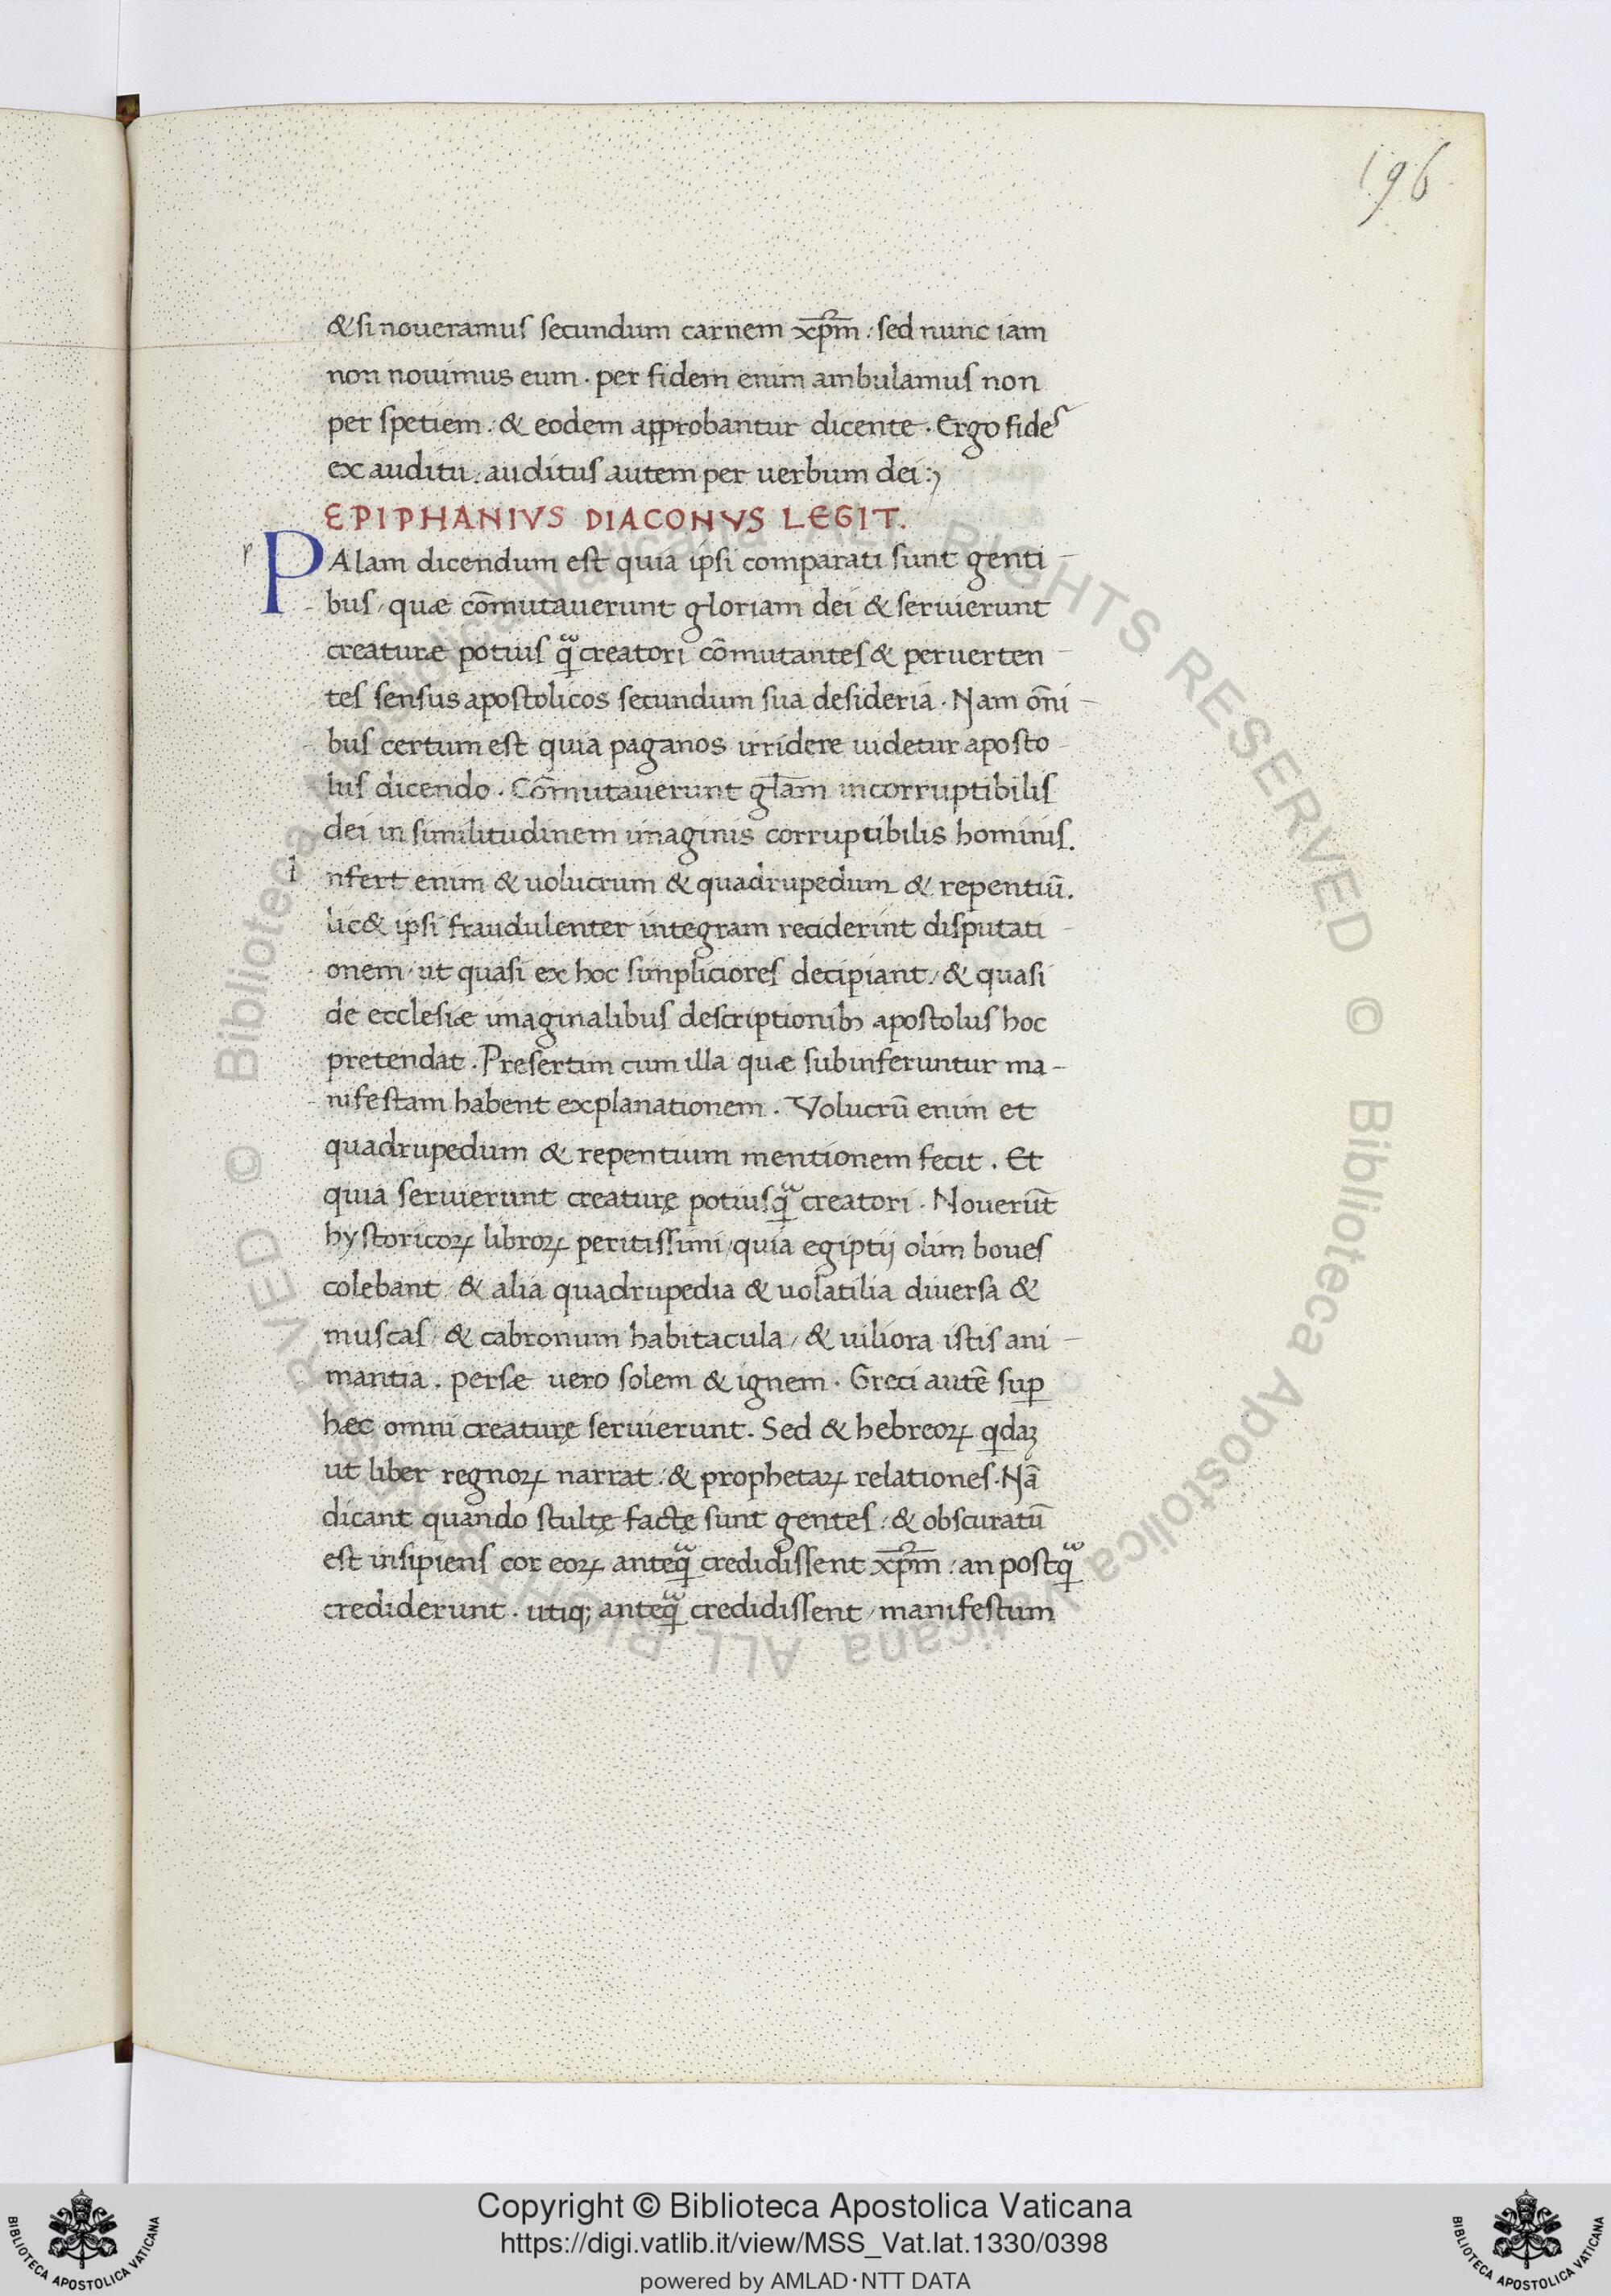 196
& si noueramus secundum carnem xp̅m : sed nunc iam
non nouimus eum . per fidem enim ambulamus non
per spetiem : & eodem approbantur dicente . Ergo fides
ex auditu . auditus autem per uerbum dei :,
EPIPHANIVS DIACONVS LEGIT.
p
PAlam dicendum est quia ipsi comparati sunt genti-
bus / quæ cōmutauerunt gloriam dei & seruierunt
creaturæ potuis qͣ creatori cōmutantes & peruerten-
tes sensus apostolicos secundum sua desideria . Nam oñi-
bus certum est quia paganos irridere uidetur aposto-
lus dicendo . Cōmutauerunt gl̅am incorruptibilis
dei in similitudinem imaginis corruptibilis hominis .
Infert enim & uolucrum & quadrupedum & repentiū .
lic& ipsi fraudulenter integram reciderint disputati-
onem / ut quasi ex hoc simpliciores decipiant / & quasi
de ecclesiæ imaginalibus descriptionibꝫ apostolus hoc
pretendat . Presertim cum illa quæ subinferuntur ma-
nifestam habent explanationem . Volucrū enim et
quadrupedum & repentium mentionem fecit . Et
quia seruierunt creaturę potiusqͣ creatori . Nouerūt
hystoricoꝝ libroꝝ peritissimi / quia egiptij olim boues
colebant / & alia quadrupedia & uolatilia diuersa &
muscas / & cabronum habitacula / & uiliora istis ani-
mantia . persæ uero solem & ignem . Greci autē suꝑ
hæc omni creaturę seruierunt . Sed & hebreoꝝ qdaꝫ
ut liber regnoꝝ narrat : & prophetaꝝ relationes . Nā
dicant quando stultę factę sunt gentes : & obscuratū
est insipiens cor eoꝝ anteqͣ credidissent xp̅m : an postqͣ
crediderunt . utiq; anteqͣ credidissent / manifestum
Copyright © Biblioteca Apostolica Vaticana
https://digi.vatlib.it/view/MSS_Vat.lat.1330/0398
powered by AMLAD·NTT DATA
BIBLIOTECA APOSTOLICA VATICANA
BIBLIOTECA APOSTOLICA VATICANA
© Biblioteca Apostolica Vaticana ALL RIGHTS RESERVED © Biblioteca Apostolica Vaticana ALL RIGHTS RESERVED